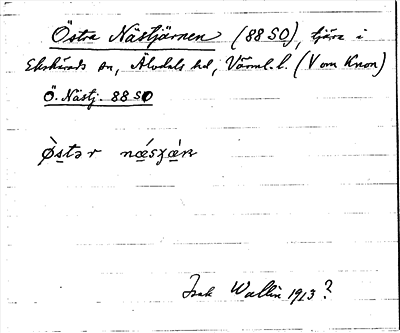 Östra Nästjärnen (88 SO), tjärn i
Ekshärads sn, Älvdals hd, Värml. l. (V om Knon)
Ö. Nästj. 88 SO
Wallin 1913?